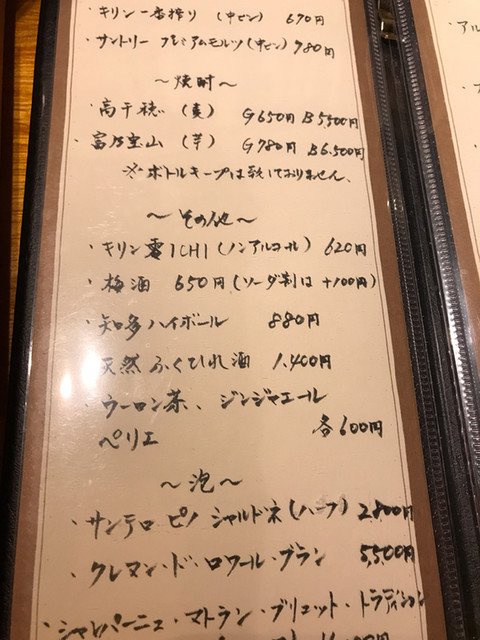 ・キリン一番搾り (中ビン) 670円
・サントリー プレミアムモルツ(中ビン) 980円
～焼酎～
・高千穂 (麦) G650円 B5,500円
・富乃宝山 (芋) G780円 B6,500円
※ボトルキープは致しておりません、
～その他～
・キリン零ICHI (ノンアルコール) 620円
・梅酒 650円(ソーダ割は+100円)
・知多ハイボール 880円
天然ふぐひれ酒 1,400円
・ウーロン茶、ジンジャエール
ペリエ 各600円
～泡～
・サンテロ ピノ シャルドネ(ハーフ) 2,800円
・クレマン・ド・ロワール・ブラン 5,500円
・シャンパーニュ・マトラン・ブリュット・トラディション
アル